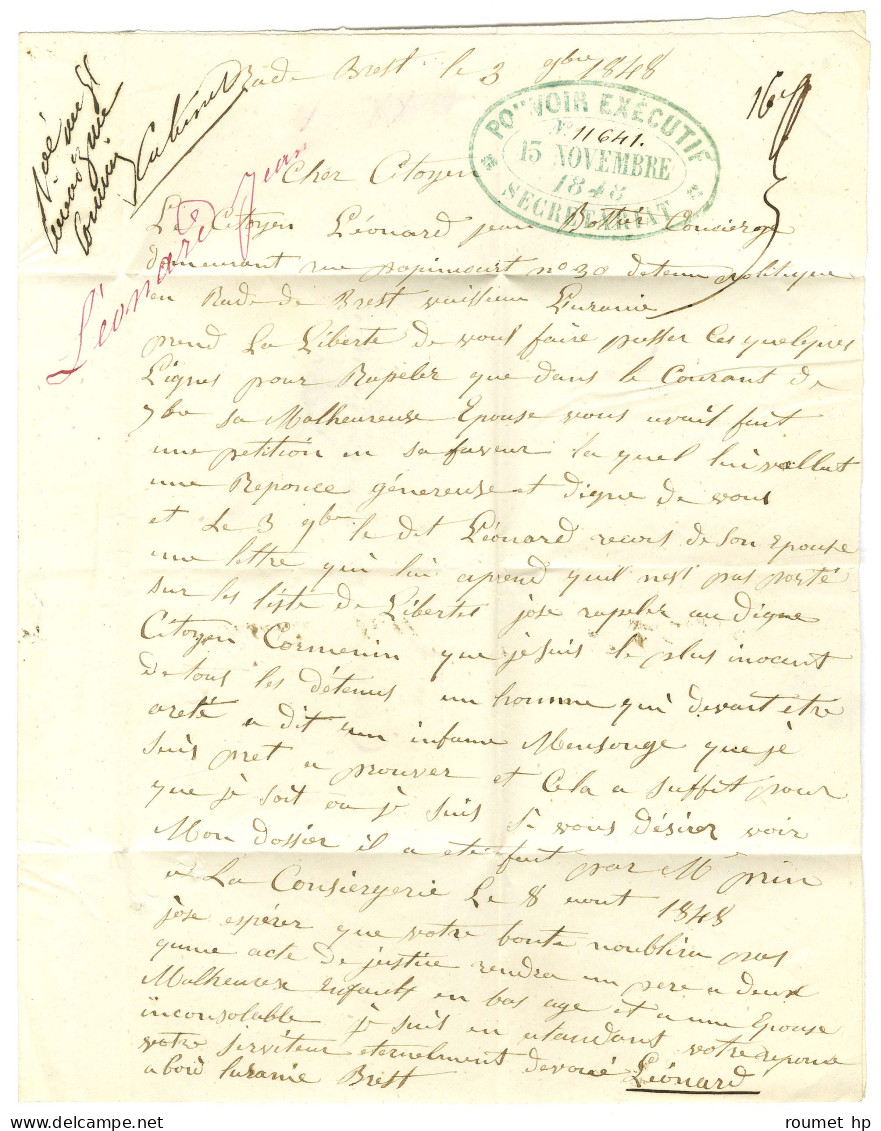 Rade Brest le 3 9bre 1848
Cabinet
POUVOIR EXÉCUTIF
No 11641.
15 NOVEMBRE
1848
SECRÉTARIAT
Léonard Jean
Cher Citoyen
Le Citoyen Léonard jean Concierge
demeurant rue popincourt no 30 detenu politique
en Rade de Brest vaisseau Luranie
prend La Liberte de vous faire passer Ces quelques
Lignes pour Rapeler que dans le Courant de
7bre sa Malheureuse Epouse vous avait fait
une petition en sa faveur la quel lui vallut
une Reponce généreuse et digne de vous
et Le 3 9bre le dit Léonard recois de son Epouse
une lettre qui lui aprend quil nest pas porté
sur les liste de Libertes jose rapeler au digne
Citoyen Cormenin que je suis le plus inocent
de tous les détenus un homme qui devait etre
areté a dit un infame Mensonge que jè
suis pret a prouver et Cela a suffit pour
que jè soit ou jè suis Si vous désirer voir
Mon dossier il a ete fait par Mr prin
a La Consiergerie Le 8 aout 1848
jose espérer que votre bonte noublira pas
qune acte de justice rendra un pere a deux
Malheureux Enfants en bas age et a une Epouse
inconsolable jè suis en atandant votre reponce
votre serviteur eternelment devoué Léonard
a bord luranie Brest
roumet hp